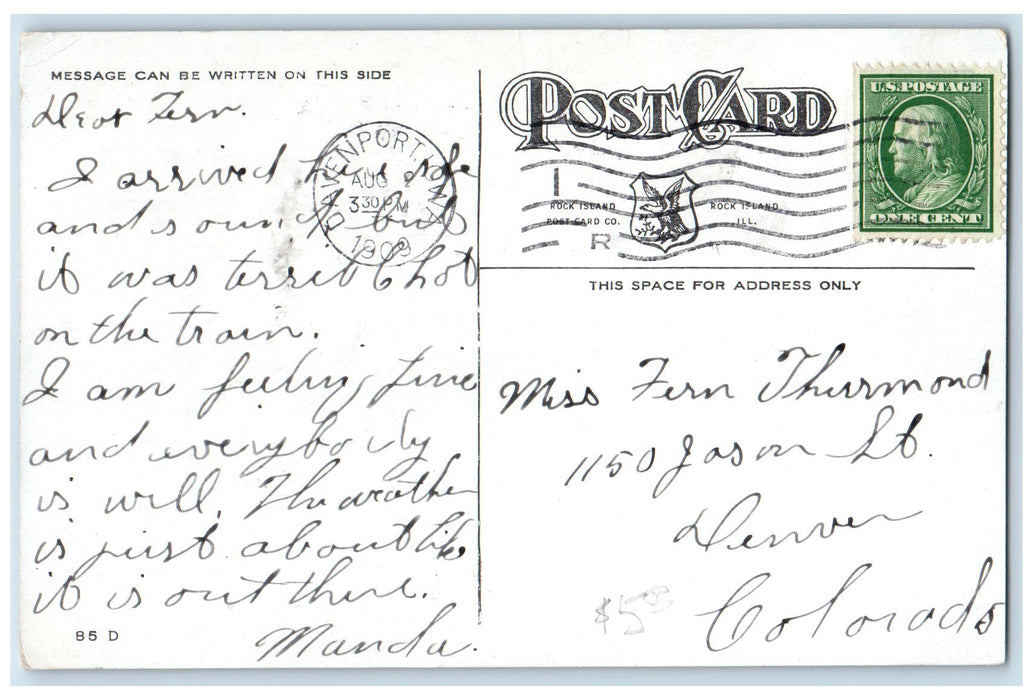 MESSAGE CAN BE WRITTEN ON THIS SIDE
Dear Fern.
I arrived here safe
and sound but
it was terrible hot
on the train.
I am feeling fine
and everybody
is well. The weather
is just about like
it is out there.
Manda.
85 D
DAVENPORT, IOWA
AUG
3 30 PM
1909
POST CARD
ROCK ISLAND
POST CARD CO.
ROCK ISLAND
ILL.
I
R
U.S. POSTAGE
ONE CENT
THIS SPACE FOR ADDRESS ONLY
Miss Fern Thurmond
1150 Jason St.
Denver
Colorado
$5.00